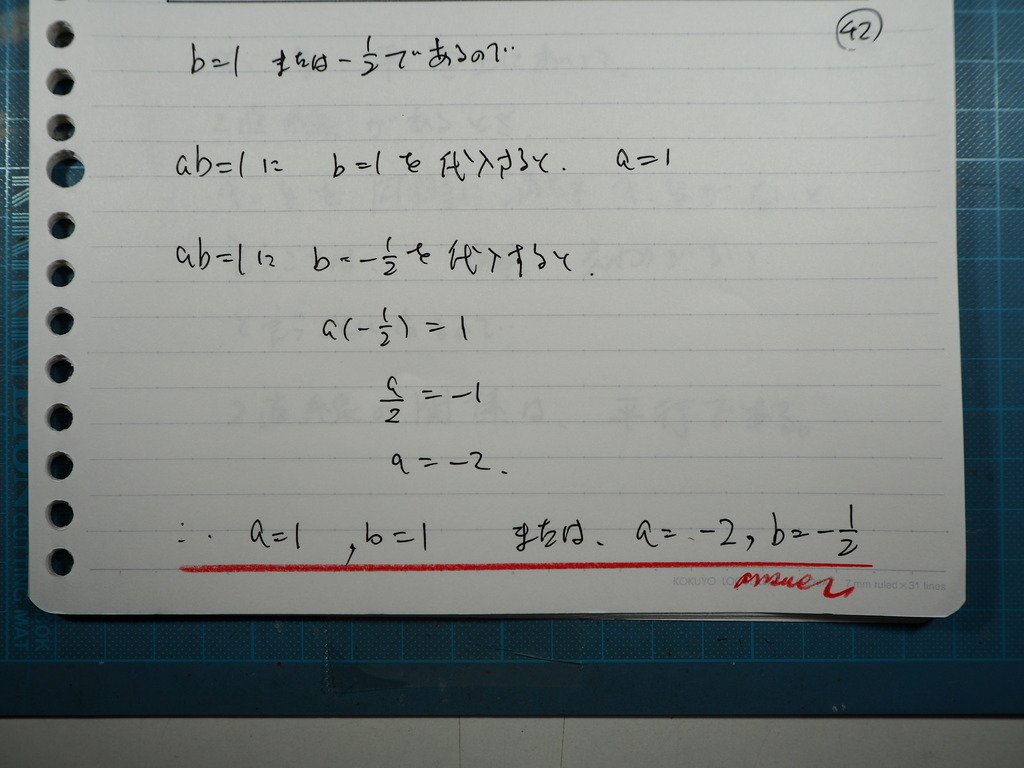 42
b=1 または -1/2 であるので‥
ab=1に b=1を代入すると. a=1
ab=1に b=-1/2を代入すると.
a(-1/2)=1
a/2=-1
a=-2.
∴ a=1 ,b=1 または、a=-2, b=-1/2
answer
KOKUYO LO 7 mm ruled×31 lines